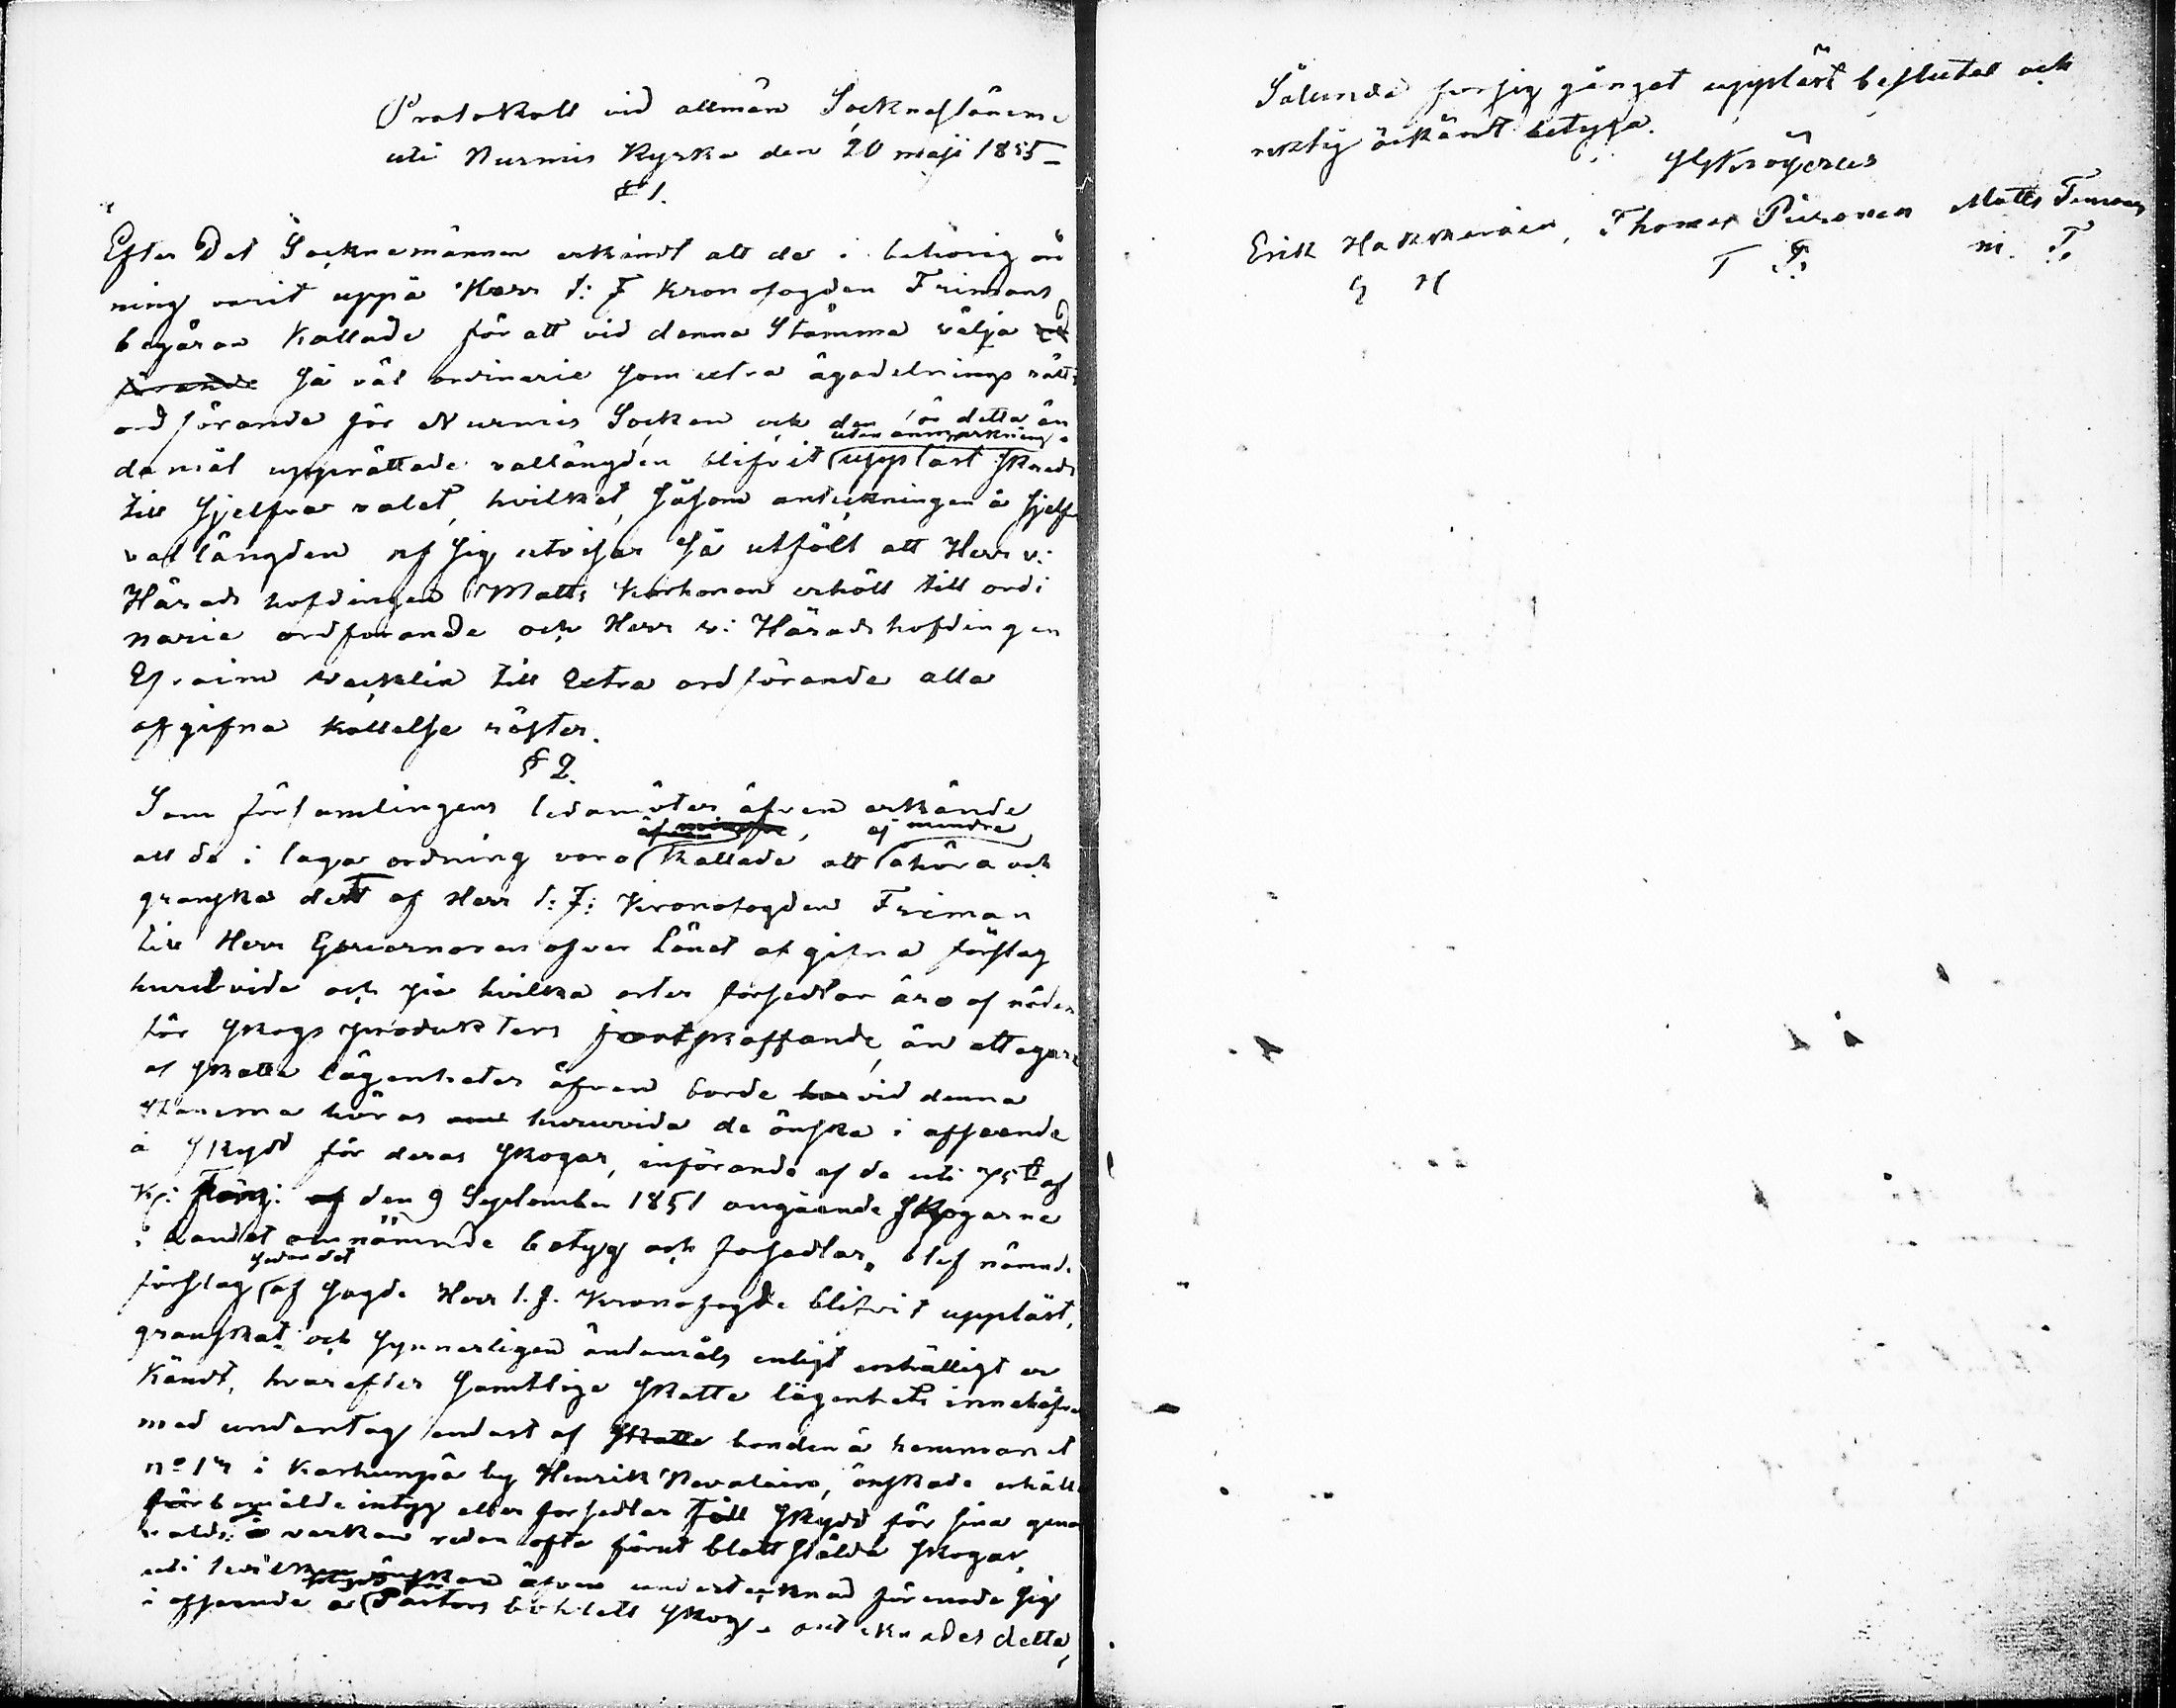 Protokoll vid allmän Socknestämma
uti Nurmis Kyrka den 20 maji 1855_
§ 1.
Efter Det Socknemännen erkändt att de i behörig ord
ning varit uppå Herr t: f Kronofogden Frimans
begäran Kallade för att vid denna Stämma välja ord
förande så väl ordinarie som extra ägodelnings rätts
ordförande för Nurmis Socken och den för detta än
uten anmärkning
damål upprättade vallängden blifvit uppläst skreds
till sjelfva valet, hvilket, såsom anteckningen å sjelfva
vallängden af sig utvisar så utföll att Herr v:
Härads hofdingen Matts Korhonen erhöll till ordi
narie ordforande och Herr v: Häradshofdingen
Efraim Wacklin till Extra ordförande alla
afgifna kallelse röster.
§ 2.
Som församlingens ledamöter äfven erkände
äfven ej mindre
att de i laga ordning voro kallade att ahöra och
granska dett af Herr t: f: Kronofogden Friman
till Herr Guvernoren öfver Länet afgifna förslag
huruvida och på hvilka orter forsedlar äro af nöden
för skogs produkters fortskaffande, än att egare
af skatte lägenheter äfven borde vid denna
Stämma höras huruvida de önska i afseende
å skydd för deras skogar, införande af de uti 75 § af
K: förord: af den 9 September 1851 angående Skogarne
i Landet omnämnde betyg och forsedlar, blef nämnde
sedan det
förslag af sagde Herr t. f. Kronofogde blifvit uppläst,
granskat och synnerligen ändamåls enligt enhälligt er
kändt, hvarefter samtlige skatte lägenhets innehafvare
med undantag endast af skatte bonden å hemmanet
no 17 i Karhunpä by Henrik Nevalain, önskade erhålla
förbemälde intyg eller forsedlar till skydd för sina genom
valds: å verkan redan ofta förut blottstälda skogar,
uti hvilken önskan äfven undertecknad förenade sig
i afseende å Pastors bohlets skog, antecknades detta,
Sålunda forsig gånget uppläst beslutet och
riktig erkändt betyga.
Erik Hakkarain, Thomas Piironen Matts Timonen
E H T P. M. T.